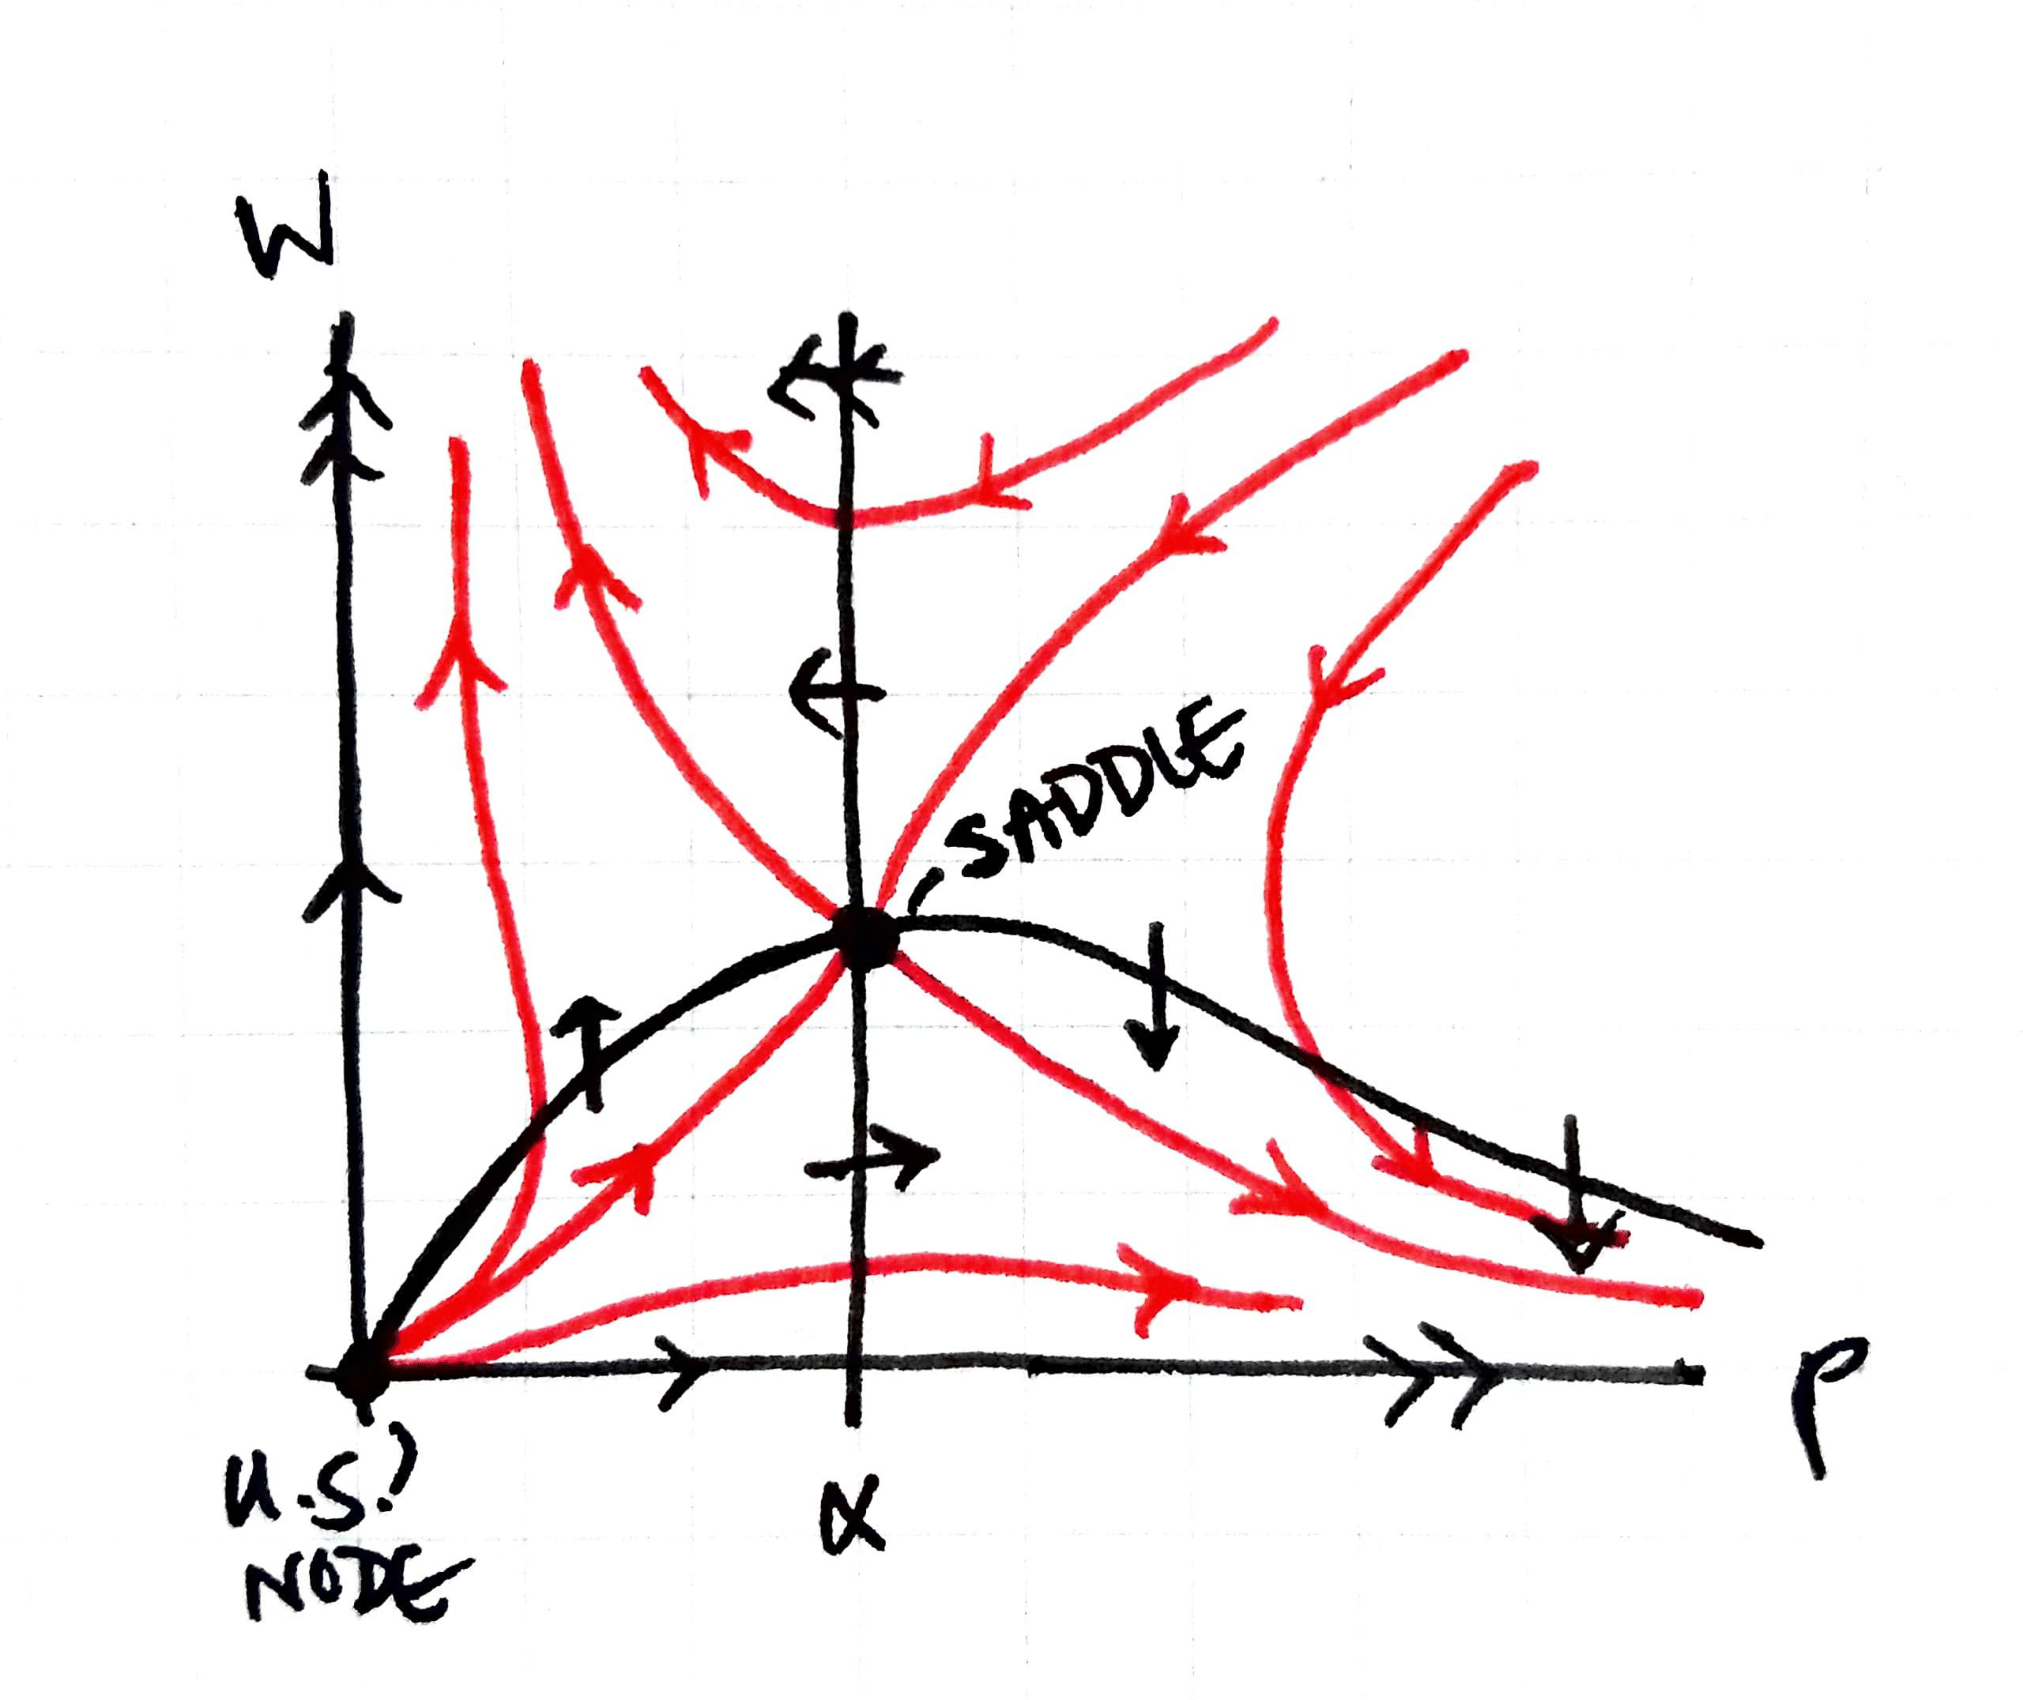 W
SADDLE
P
U.S.?
NODE
α